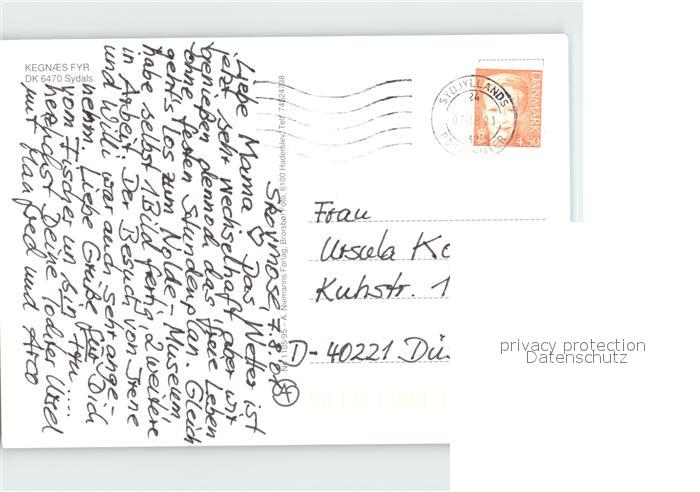 KEGNÆS FYR
DK 6470 Sydals
Liebe Mama ♡ Das Wetter ist
jetzt sehr wechselhaft aber wir
genießen dennoch das freie Leben
ohne festen Stundenplan. Gleich
geht's los zum Nolde-Museum
habe selbst 1 Bild fertig, 2 weitere
in Arbeit. Der Besuch von Irene
und Willi war auch sehr ange-
nehm. Liebe Grüße für Dich
vom Fischer un sin Fru....
herzlichst Deine Tochter Ursel
mit Manfred und Arco
Skovmose,
A. Niemanns Forlag, Brorsbøl Foto, 6100 Haderslev, Telf.
SYDJYLLANDS
POSTCENTER
DANMARK
4.50
Frau
Ursula
Kuhstr. 1
D-40221 Dü
privacy protection
Datenschutz